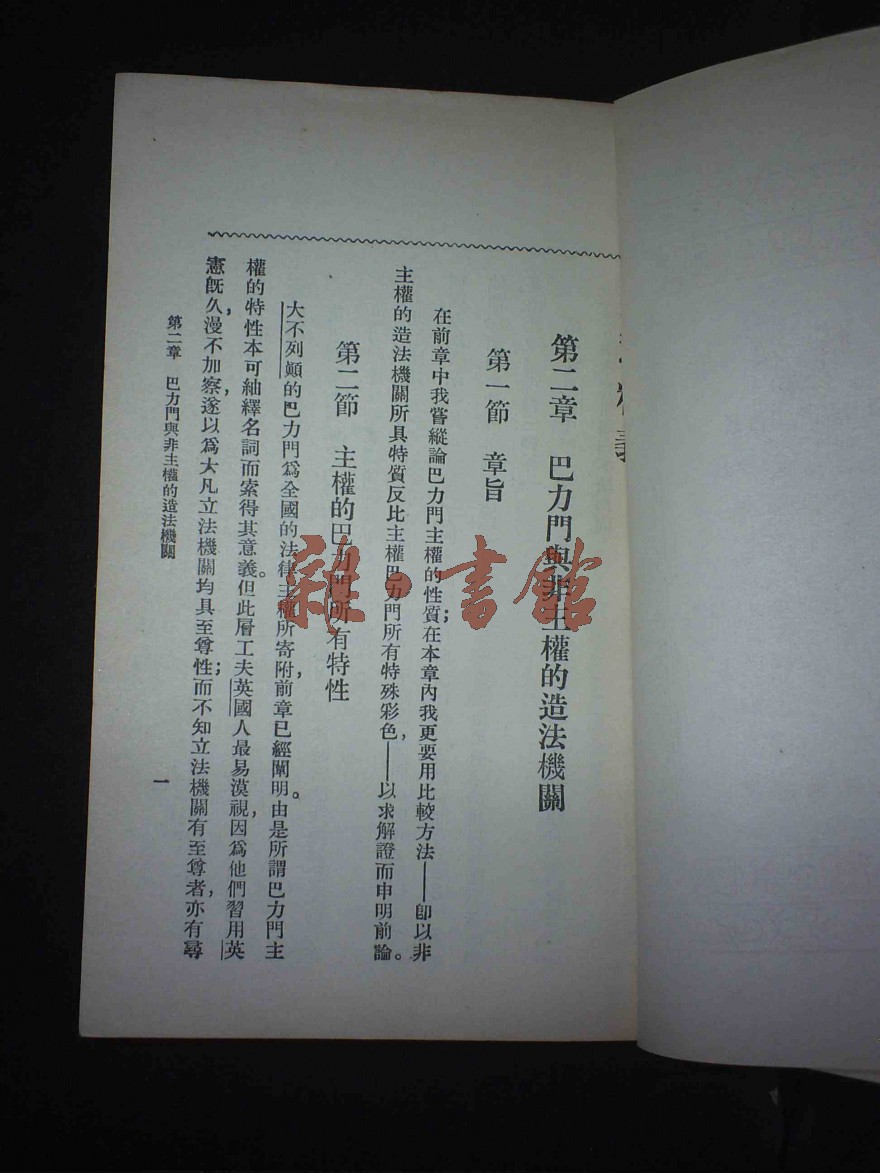 第二章　巴力門與非主權的造法機關
第一節　章旨
在前章中我嘗縱論巴力門主權的性質；在本章內我更要用比較方法——卽以非
主權的造法機關所具特質反比主權巴力門所有特殊彩色，——以求解證而申明前論。
第二節　主權的巴力門所有特性
大不列顛的巴力門爲全國的法律主權所寄附，前章已經闡明。由是所謂巴力門主
權的特性本可紬繹名詞而索得其意義。但此層工夫英國人最易漠視，因爲他們習用英
憲旣久，漫不加察，遂以爲大凡立法機關均具至尊性；而不知立法機關有至尊者，亦有尋
第二章　巴力門與非主權的造法機關
一
雜·書館